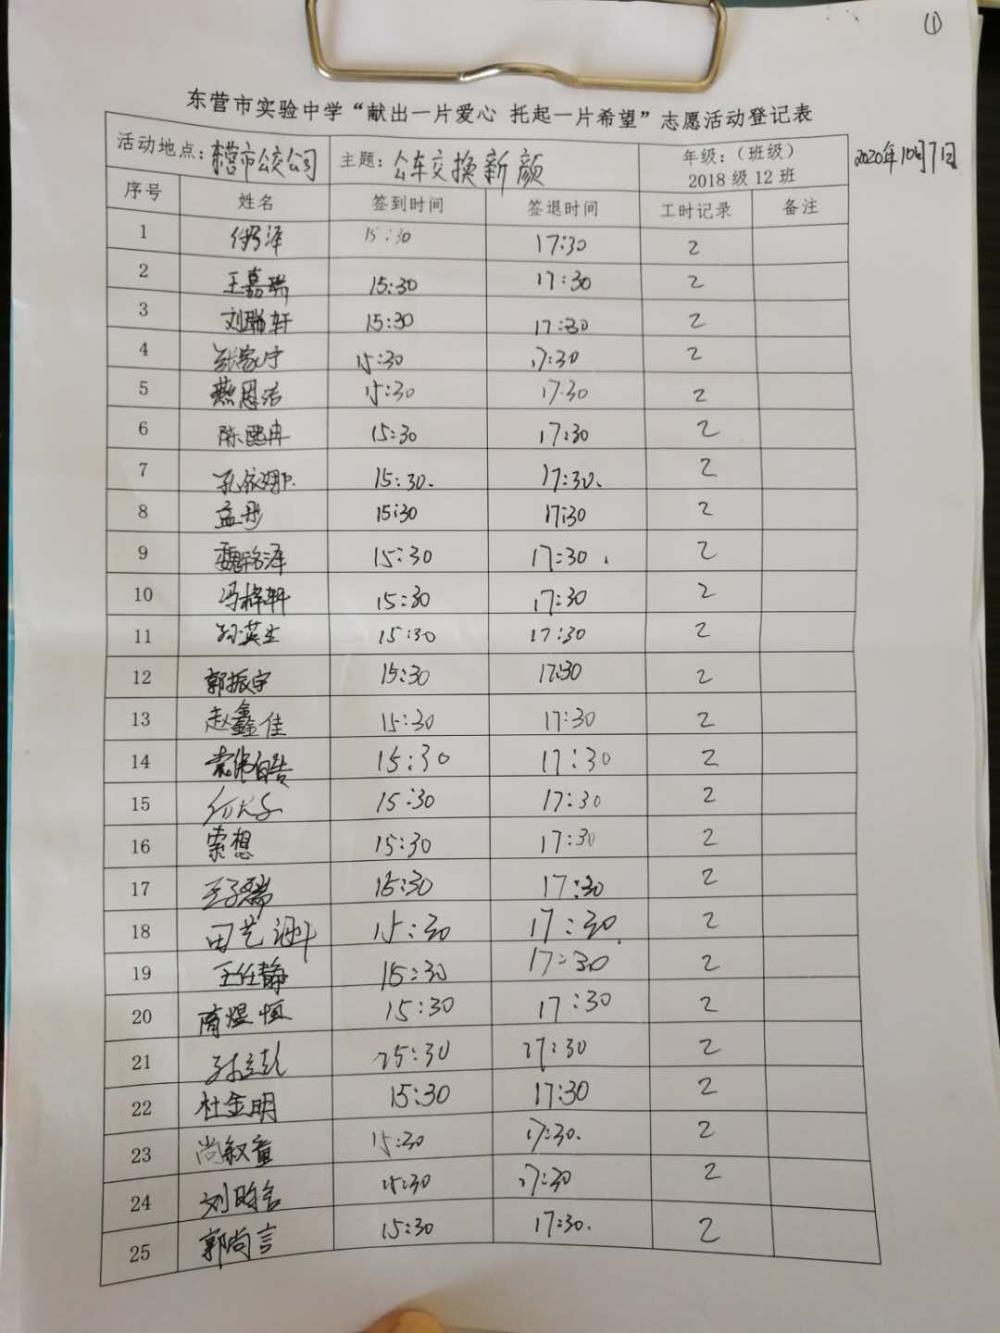 ①
东营市实验中学“献出一片爱心 托起一片希望”志愿活动登记表
活动地点：东营市公交公司 主题：公车交换新颜 年级：（班级） 2018级12班 2020年10月7日
序号 姓名 签到时间 签退时间 工时记录 备注
1 15:30 17:30 2
2 王嘉瑞 15:30 17:30 2
3 刘瀚轩 15:30 17:30 2
4 15:30 17:30 2
5 燕恩浩 15:30 17:30 2
6 陈熙冉 15:30 17:30 2
7 孔依娜 15:30. 17:30.
2
8 孟彤 15:30 17:30 2
9 魏铭泽 15:30 17:30. 2
10 冯梓轩 15:30 17:30 2
11 孙英杰 15:30 17:30 2
12 郭振宇 15:30 17:30 2
13 赵鑫佳 15:30 17:30 2
14 袁伟皓 15:30 17:30 2
15 15:30 17:30 2
16 索想 15:30 17:30 2
17 王子瑞 15:30 17:30 2
18 田艺涵 15:30 17:30. 2
19 王任静 15:30 17:30 2
20 商煜恒 15:30 17:30 2
21 15:30 17:30 2
22 杜金明 15:30 17:30 2
23 尚叙童 15:30 17:30. 2
24 刘晗 15:30 17:30 2
25 郭尚言 15:30 17:30. 2